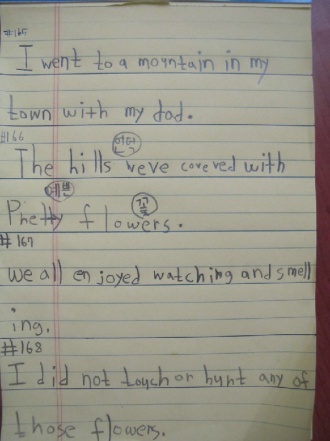 #165
I went to a mountain in my
town with my dad.
#166
언덕
The hills were covered with
예쁜 꽃
Pretty flowers.
#167
we all enjoyed watching and smell
ing.
#168
I did not touch or hurt any of
those flowers.